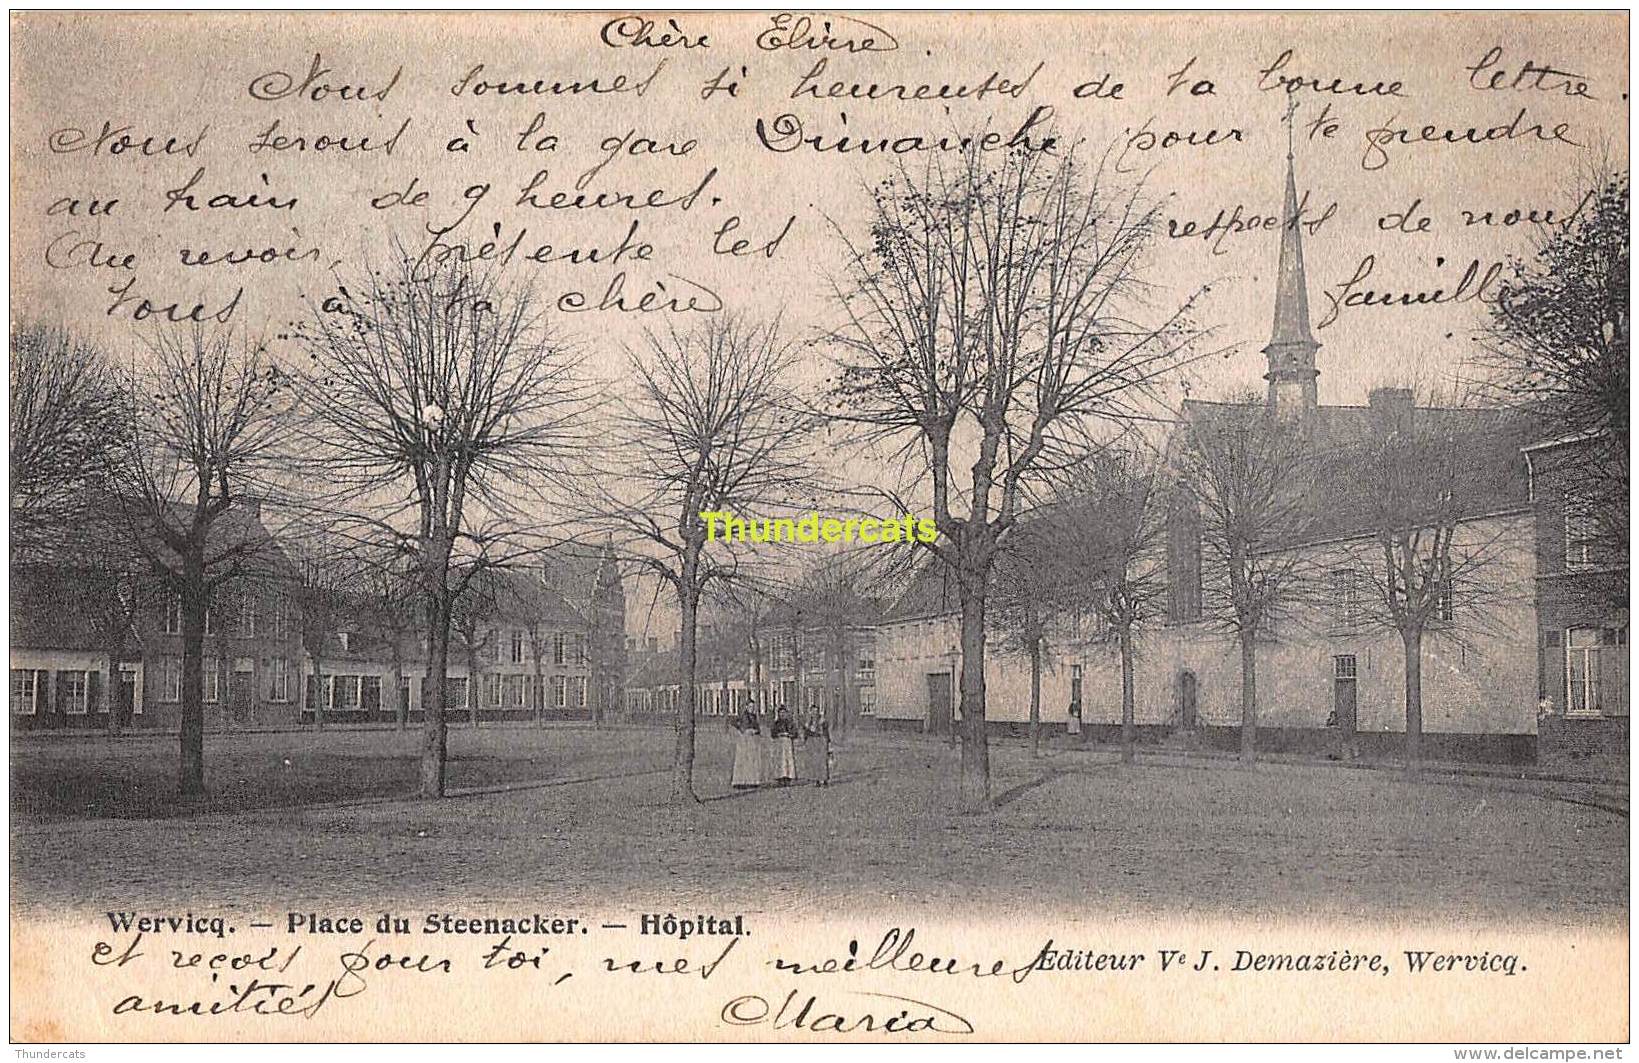 Chère Elvire.
Nous sommes si heureuses de ta bonne lettre.
Nous serons à la gare Dimanche pour te prendre
au train de 9 heures.
Au revoir, présente les respects de nous
tous à ta chère famille
Thundercats
Wervicq. — Place du Steenacker. — Hôpital.
et reçois pour toi, mes meilleures
Editeur Ve J. Demazière, Wervicq.
amitiés
Maria
Thundercats
www.delcampe.net